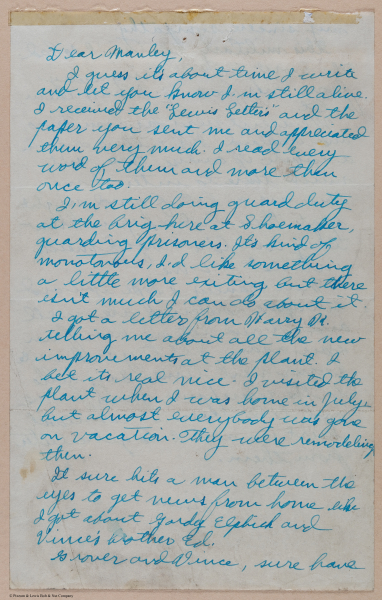 Dear Manley,
I guess its about time I write
and let you know I,m still alive.
I received the "Lewis Letters" and the
paper you sent me and appreciated
them very much. I read every
word of them and more than
once too.
I,m still doing guard duty
at the brig here at Shoemaker,
guarding prisoners. It's kind of
monotonous, I,d like something
a little more exiting but there
isn't much I can do about it.
I got a letter from Harry
telling me about all the new
improvements at the plant. I
bet its real nice. I visited the
plant when I was home in July
but almost everybody was gone
on vacation. They were remodeling
then.
It sure hits a man between the
eyes to get news from home like
I got about Gordy and
Vince's brother Ed.
Grover and Vince, sure have